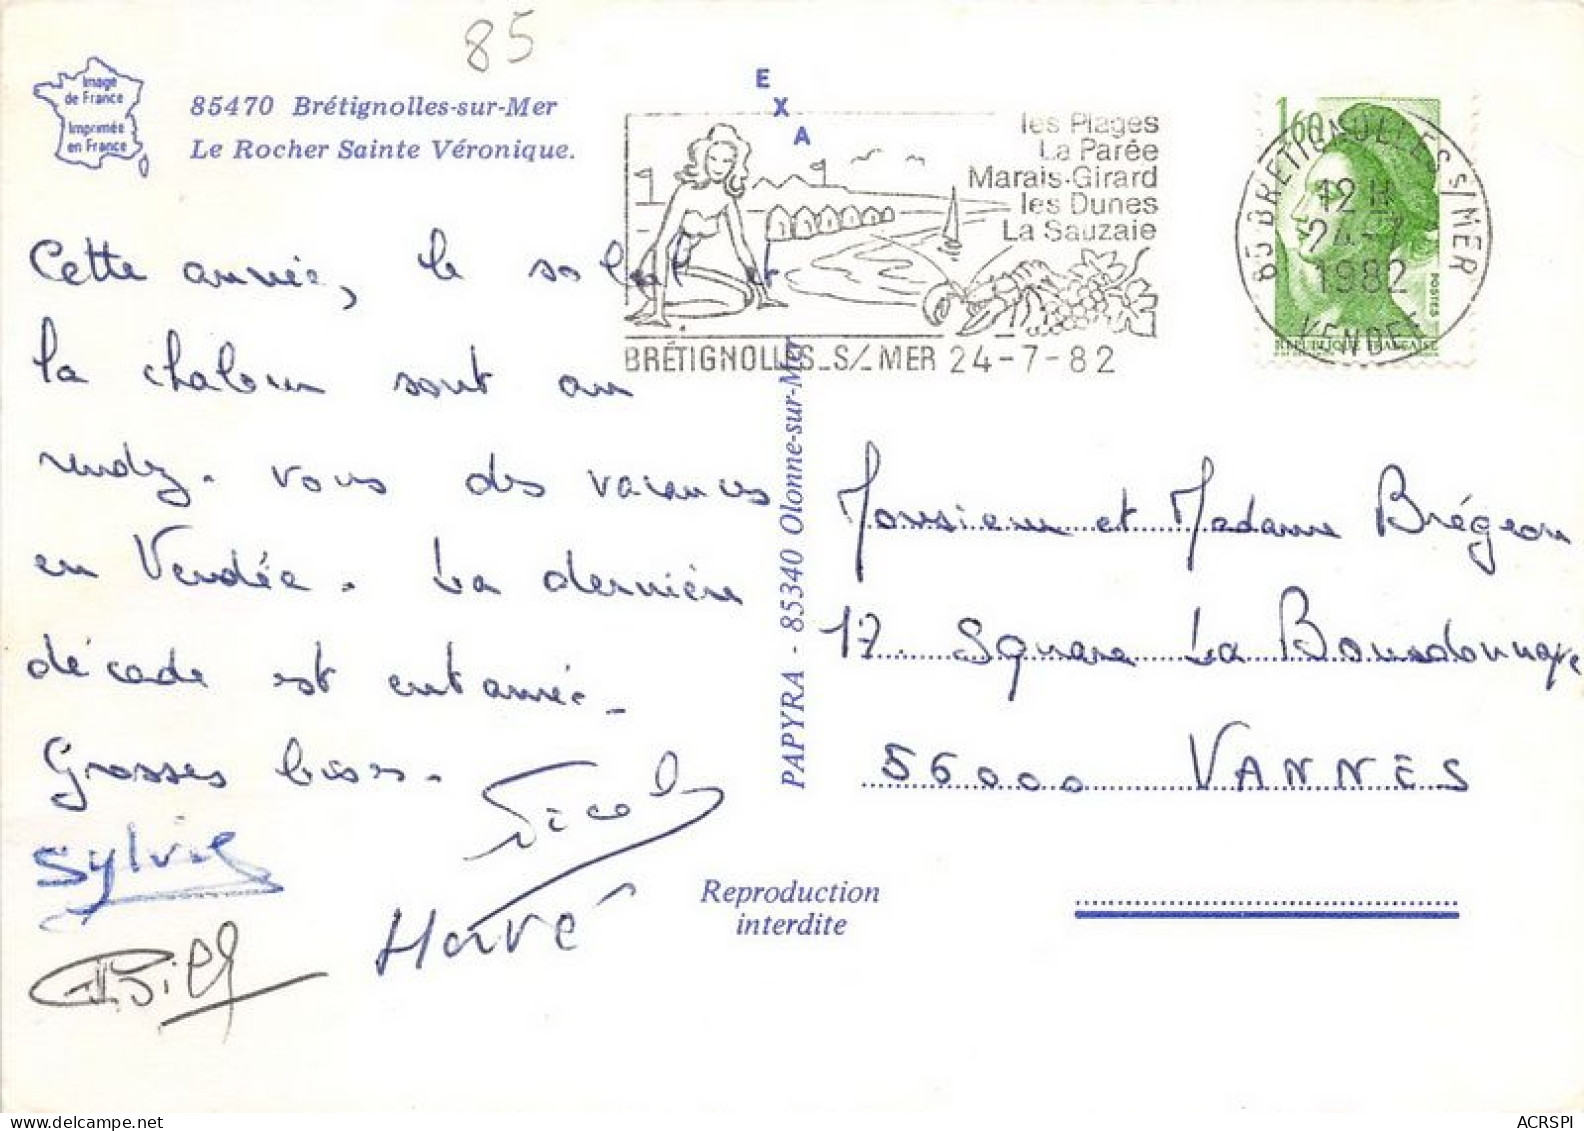 85
Image
de France
Imprimée
en France
85470 Brétignolles-sur-Mer
Le Rocher Sainte Véronique.
EXA
les Plages
La Parée
Marais-Girard
les Dunes
La Sauzaie
BRÉTIGNOLLES_S/_MER 24-7-82
1,60
POSTES
REPUBLIQUE FRANÇAISE
85 BRETIGNOLLES S/MER
12 H
24-7
1982
VENDEE
Cette année, le soleil et
la chaleur sont au
rendez-vous des vacances
en Vendée. La dernière
décade est entamée.
Grosses bises.
Sylvie
Nicole
Hervé
PAPYRA - 85340 Olonne-sur-Mer
Monsieur et Madame Brégeon
17 Square La Bourdonnaye
56000 VANNES
Reproduction
interdite
delcampe.net
ACRSPI